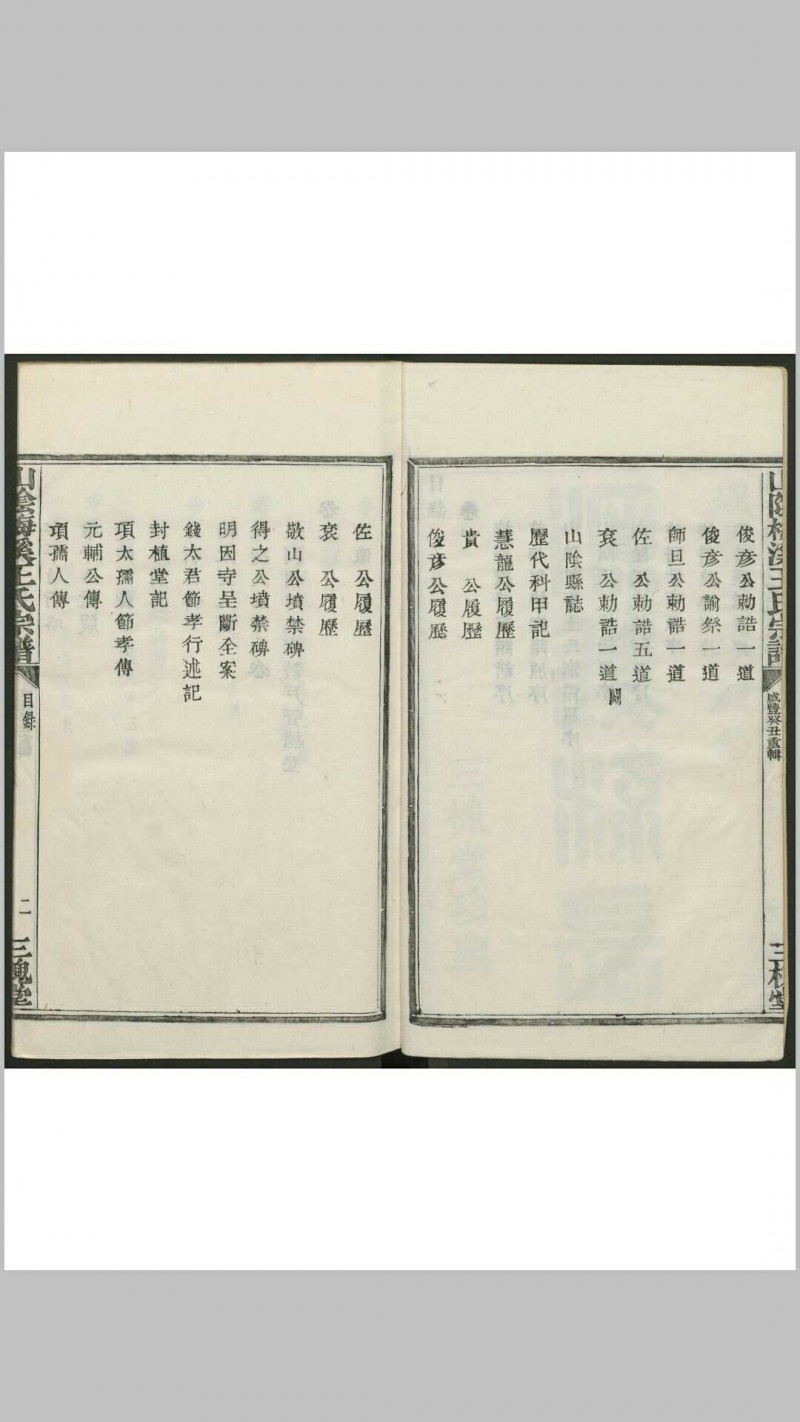 山陰梅溪王氏宗譜
咸豐癸丑重輯
三槐堂
俊彦公勅誥一道
俊彦公諭祭一道
師旦公勅誥一道
佐 公勅誥五道
衮 公勅誥一道 闕
山陰縣誌
歷代科甲記
慧龍公履歷
貴 公履歷
俊彦公履歷
佐 公履歷
衮 公履歷
敬山公墳禁碑
得之公墳禁碑
明因寺呈斷全案
錢太君節孝行述記
封植堂記
項太孺人節孝傳
元輔公傳
項孺人傳
山陰梅溪王氏宗譜
目錄
二
三槐堂